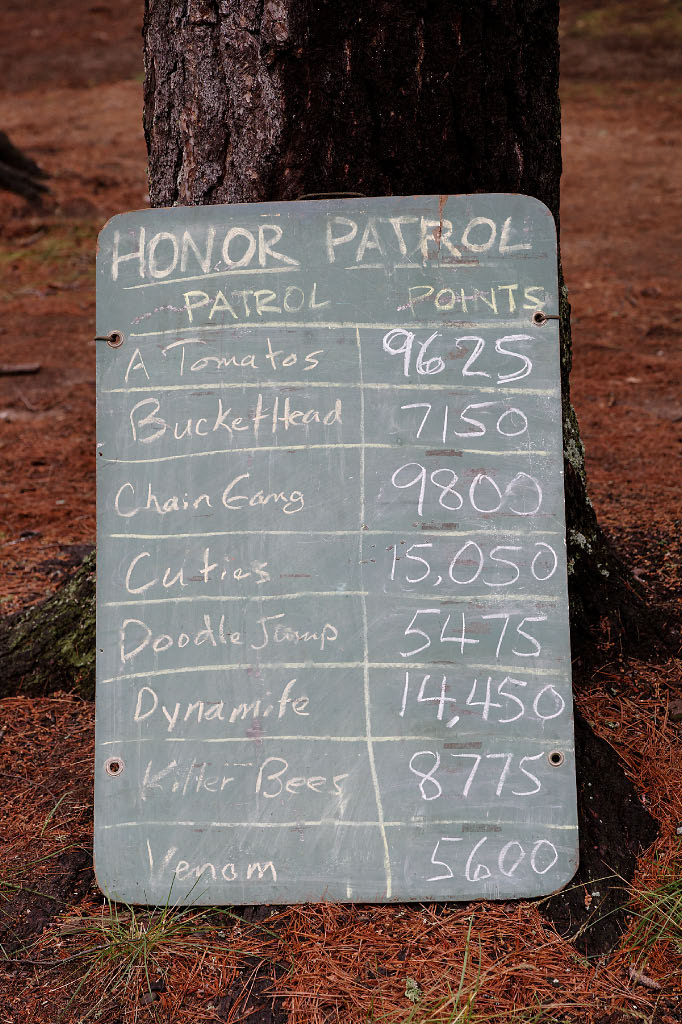 HONOR PATROL
PATROL POINTS
A Tomatos 9625
BucketHead 7150
Chain Gang 9800
Cuties 15,050
Doodle Jump 5475
Dynamite 14,450
Killer Bees 8775
Venom 5600